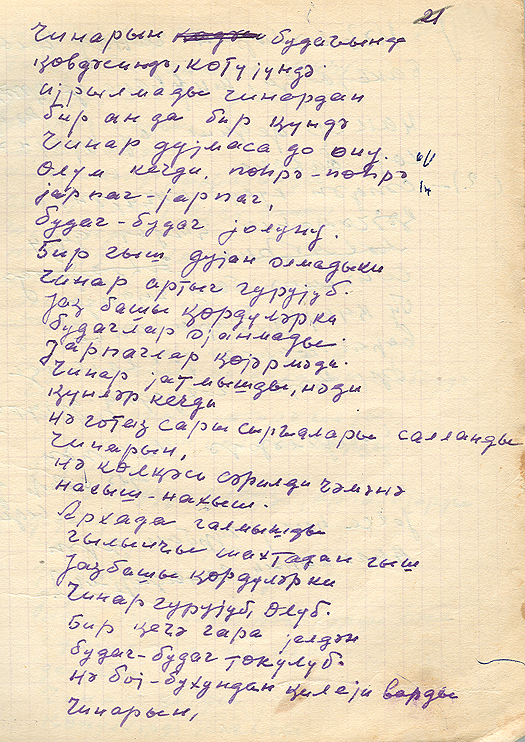 21
Чинарын будағында
ҝөвдәсиндә, көтүјүндә
ајрылмады чинардан
бир ан да бир ҝүндә
Чинар дујмаса да ону.
Өлүм кечди, пөһрә-пөһрә
јарпаг-јарпаг,
будаг-будаг јолуну.
Бир гыш дујан олмадыки
чинар артыг гурујуб.
Јаз башы ҝөрдүләрки
будаглар ојанмады.
Јарпаглар ҝөјәрмәди.
Чинар јатмышды, нәди
ҝүнләр кечди
нә готаз сары сырғалары салланды
чинарын,
нә көлҝәси сәрилди чәмәнә
нахыш-нахыш.
Архада галмышды
гылынчы шахтадан гыш
Јазбашы ҝөрдүләрки
Чинар гурујуб, өлүб.
Бир ҝеҹә гара јелдән
будаг-будаг төкүлүб.
Нә бој-бухундан ҝилеји варды
чинарын,